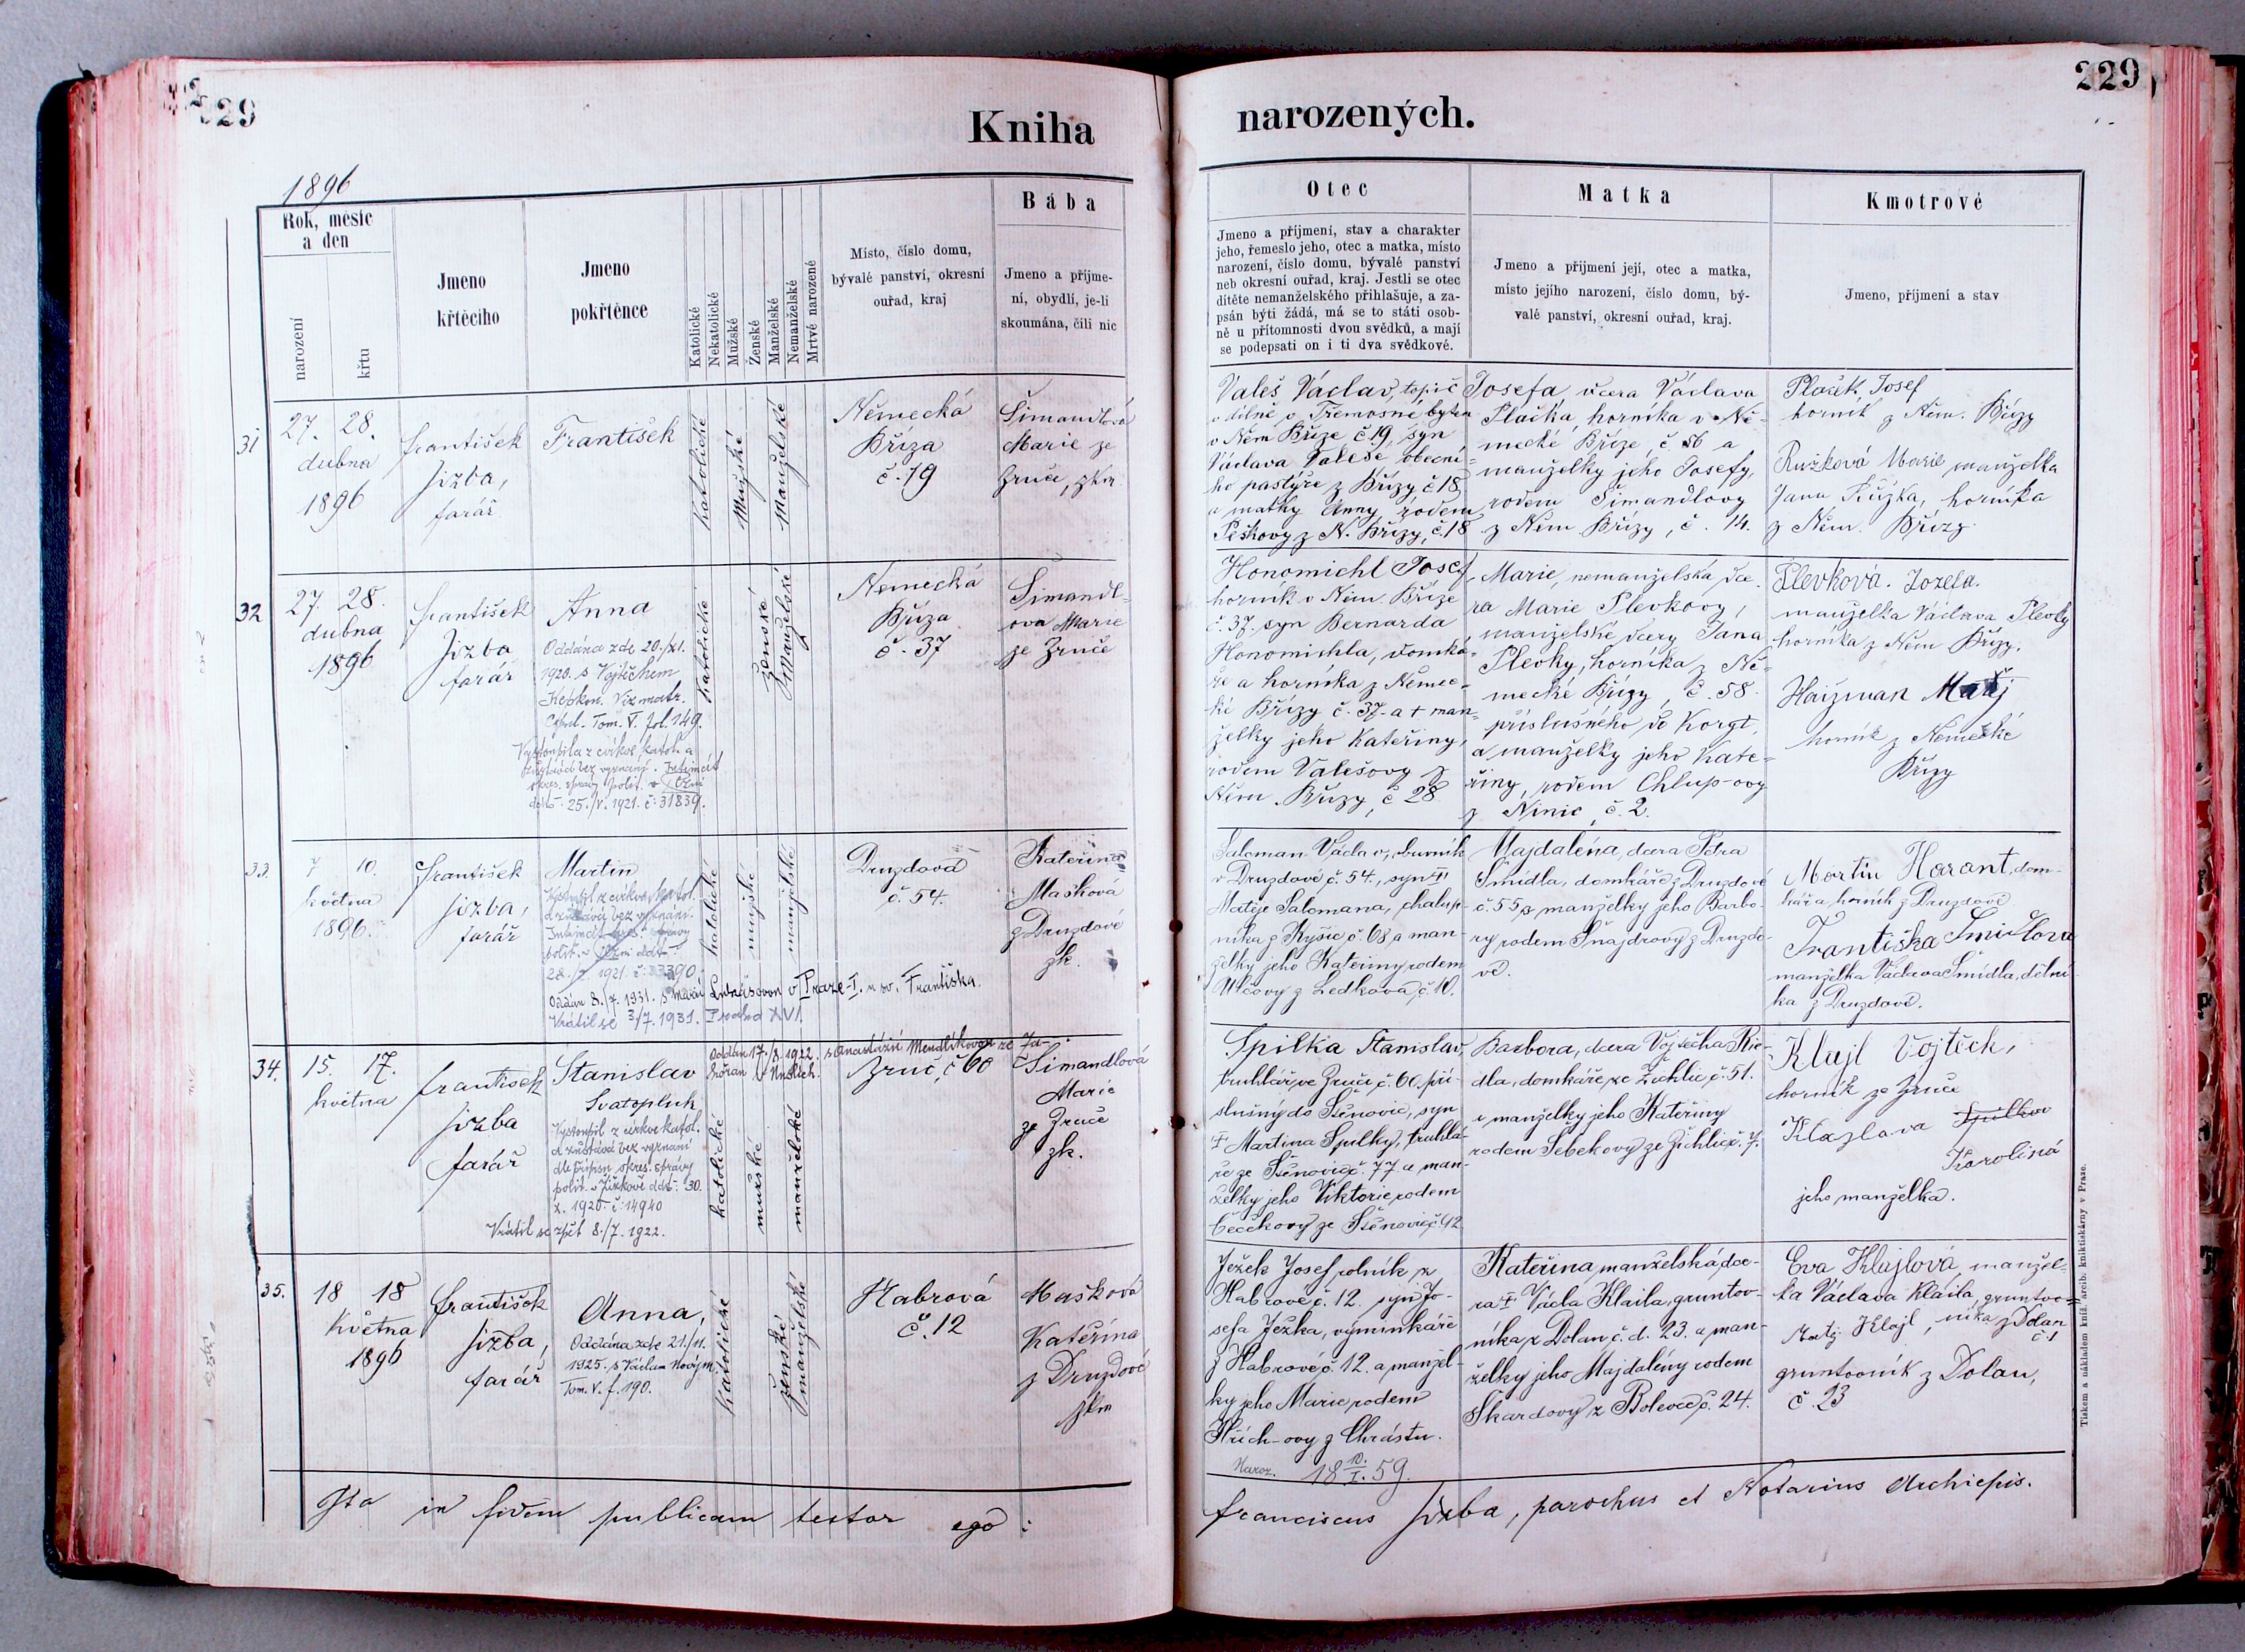 229
Kniha narozených.
1896
Rok, měsíc
a den
narození
křtu
Jmeno
křtěcího
Jmeno
pokřtěnce
Katolické
Nekatolické
Mužské
Ženské
Manželské
Nemanželské
Mrtvě narozené
Místo, číslo domu,
bývalé panství, okresní
ouřad, kraj
Bába
Jmeno a příjme-
ní, obydlí, je-li
skoumána, čili nic
Otec
Jmeno a příjmení, stav a charakter
jeho, řemeslo jeho, otec a matka, místo
narození, číslo domu, bývalé panství
neb okresní ouřad, kraj. Jestli se otec
dítěte nemanželského přihlašuje, a za-
psán býti žádá, má se to státi osob-
ně u přítomnosti dvou svědků, a mají
se podepsati on i ti dva svědkové.
Matka
Jmeno a příjmení její, otec a matka,
místo jejího narození, číslo domu, bý-
valé panství, okresní ouřad, kraj.
Kmotrové
Jmeno, příjmení a stav
31
27. 28.
dubna
1896
František
Jizba,
farář
František
katolické
Mužské
Manželské
Německá
Bříza
č. 19
Šimandlová
Marie ze
Zruče, zkm
Valeš Václav, topič
v dílně v Třemošné bytem
v Něm Bříze č. 19, syn
Václava Valeše obecní-
ho pastýře z Břízy č. 18
a matky Anny rodem
Peškovy z N. Břízy, č. 18
Josefa dcera Václava
Plačka, horníka v Ně-
mecké Bříze, č. 56 a
manželky jeho Josefy,
rodem Šimandlovy
z Něm. Břízy, č. 14.
Plaček Josef
horník z Něm. Břízy
Růžková Marie manželka
Jana Růžka, horníka
z Něm. Břízy
32
27. 28.
dubna
1896
František
Jizba
farář
Anna
Oddána zde 20./XI.
1920. s Vojtěchem
Viz matr.
Copul. Tom. V. fol. 149.
Vystoupila z církve katol. a
zůstává bez vyznání. Intimát
okres. správy polit. v Plzni
ddto: 25./V. 1921. č: 31839.
katolické
Ženské
Manželské
Německá
Bříza
č. 37
Šimandl-
ova Marie
ze Zruče
Honomichl Josef
horník v Něm. Bříze
č. 37. syn Bernarda
Honomichla, domká-
ře a horníka z Němec-
ké Břízy č. 37. a + man-
želky jeho Kateřiny,
rodem Valešovy z
Něm. Břízy, č 28
Marie, nemanželská dce-
ra Marie Plevkovy,
manželské dcery Jana
Plevky, horníka z Ně-
mecké Břízy, č. 58.
příslušného do Korgt,
a manželky jeho Kate-
řiny, rodem Chlup-ovy
z Ninic, č. 2.
Plevková. Jozefa.
manželka Václava Plevky
horníka z Něm Břízy.
Haizman Matěj
horník z Německé
Břízy
33.
7 10.
května
1896.
František
Jizba,
farář
Martin
Vystoupil z církve katol.
a zůstává bez vyznání.
Intimát okres. správy
polit. v Plzni ddto:
Oddán 8./7. 1931. s Marií Lukášovou v Praze-I. u sv. Františka.
Vrátil se 3/7. 1931. Praha XVI
katolické
mužské
manželské
Druzdová
č. 54.
Kateřina
Mašková
z Druzdové
zk.
Saloman Václav, obuvník
v Druzdové č. 54., syn †
Matěje Salomana, chalup-
níka z Kyšic č. 68 a man-
želky jeho Kateřiny rodem
Vlčovy z Ledkova, č. 10.
Majdalena, dcera Petra
Šmídla, domkáře z Druzdové
č. 55, a manželky jeho Barbo-
ry rodem Šnajdrovy z Druzdo-
vé.
Martin Harant, dom-
káře, horník z Druzdové
Františka Šmidlova
manželka Václava Šmídla, dělní-
ka z Druzdové.
34.
15. 17.
května
František
Jizba
farář
Stanislav
Svatopluk
Oddán 17./8. 1922. s Anastázií Mendlíkovou ze Za-
Vystoupil z církve katol.
a zůstává bez vyznání
dle přípisu okres. správy
polit. v Žižkově ddto: 30.
X. 1920. č: 14940
Vrátil se zpět 8./7. 1922.
katolické
mužské
manželské
Zruč, č 60
Šimandlová
Marie
ze Zruče
zk.
Spilka Stanislav,
truhlář, ve Zruči, č. 60. pří-
slušný do Štěnovic, syn
† Martina Spilky, truhlá-
ře ze Štěnovic č. 77 a man-
želky jeho Viktorie rodem
Čečekovy ze Štěnovic č. 42
Barbora, dcera Vojtěcha Rie-
dla, domkáře ze Žichlic, č. 51.
a manželky jeho Kateřiny
rodem Šebekovy ze Žichlic č. 7.
Klajl Vojtěch,
horník ze Zruče
Klajlova Spilkov
Karolina
jeho manželka.
35.
18 18
Května
1896
František
Jizba,
farář
Anna,
Oddána zde 21./11.
1925. s Václavem Novým
Tom. V. f. 190.
Katolické
ženské
manželské
Habrová
č. 12
Mašková
Kateřina
z Druzdové
zkm
Ježek Josef, rolník z
Habrové č. 12. syn Jo-
sefa Ježka, výminkáře
z Habrové č. 12. a manžel-
ky jeho Marie rodem
Hřích-ovy z Chrástu.
Naroz. 18 10./I. 59.
Kateřina, manželská dce-
ra † Václa Klaila, gruntov-
níka z Dolan, č. d. 23. a man-
želky jeho Majdalény rodem
Škardovy z Bolevce, č. 24.
Eva Klajlová, manžel-
ka Václava Klaila, gruntov-
níka z Dolan
č. 1
Matěj Klajl,
gruntovník z Dolan,
č. 23
Ita in fidem publicam testor ego:
Franciscus Jizba, parochus et Notarius Archiepis.
Tiskem a nákladem kníž. arcib. knihtiskárny v Praze.